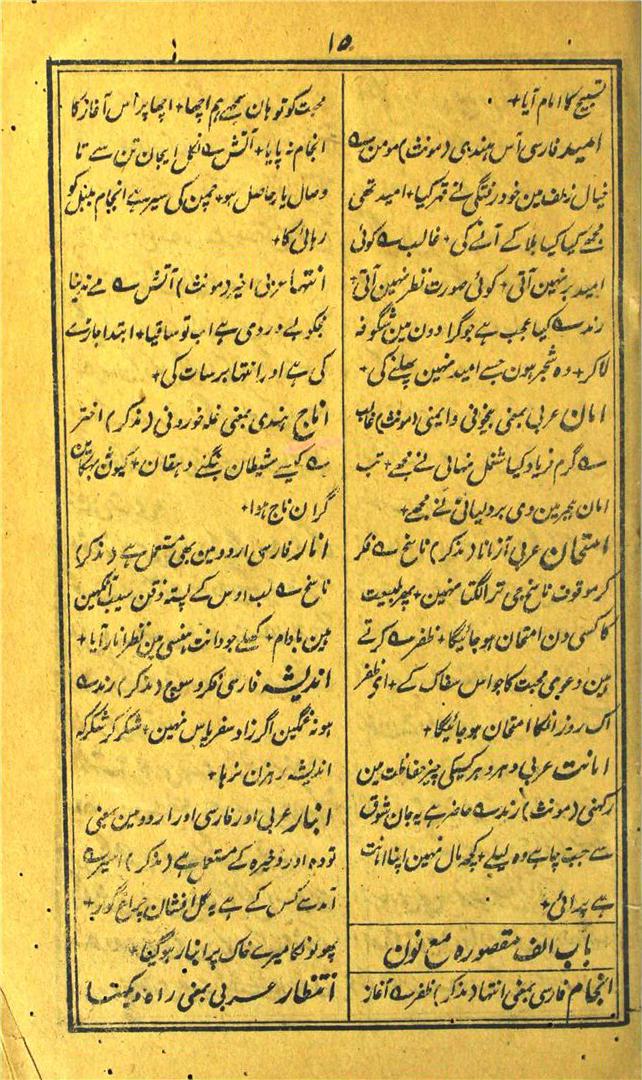 ۱۵
تسبیح کا امام آیا+
امید فارسی آس ہندی (مونث) مومن ے
خیال زلف مین خود رفتگی نے قہر کیا+ امید تھی
مجھے کیا کیا بلا کے آنے کی+ غالب ے کوئی
امید بر نہین آتی+ کوئی صورت نظر نہین آتی+
رند ے کیا عجب ہے جو گرا دون مین شگوفہ
لا کر+ وہ شجر ہون جسے امید نہین پھلنے کی+
امان عربی بمعنی بیخوفی و ایمنی (مونث) غالب
ے گرم فریاد کیا شکل نہالی نے مجھے+ تب
امان ہجر مین دی برد لیالی نے مجھے+
امتحان عربی آزمانا (مذکر) ناسخ ے فکر
کر موقوف ناسخ جی ترا لگتا نہین+ پھر طبیعت
کا کسی دن امتحان ہو جائیگا+ ظفر ے کرتے
ہین دعوی محبت کا جو اس سفاک کے+ ای ظفر
اک روز انکا امتحان ہو جائیگا+
امانت عربی دہر ہر کسیکی چیز حفاظت مین
رکھنی (مونث) رند ے حاضر ہے یہ جان شوق
سے جب چاہے وہ لیلے+ کچھ مال نہین اپنا امانت
ہے پرائی+
باب الف مقصورہ مع نون
انجام فارسی بمعنی انتہا (مذکر) ظفر ے آغاز
محبت کو تو ہان سمجھے ہم اچھا+ اچھا پر اس آغاز کا
انجام نہ پایا+ آتش ے نکل ایجان تن سے تا
وصال یار حاصل ہو+ چمن کی سیر ہے انجام بلبل کو
رہائی کا+
انتہا عربی اخیر (مونث) آتش ے مے نہ دینا
مجکو بے دردی ہے اب تو ساقیا+ ابتدا جاڑے
کی ہے اور انتہا برسات کی+
اناج ہندی بمعنی غلہ خوردنی (مذکر) اختر
ے کیسے شیطان بنگئے دہقان+ گیہون بہکا مین
گران ناج ہوا+
انار فارسی اردو مین بھی مستعمل ہے (مذکر)
ناسخ ے لب اوس کے پستہ ذقن سیب آنکھین
ہین بادام+ کھلے جو دانت ہنسی مین نظر انار آیا+
اندیشہ فارسی فکر و سوچ (مذکر) رند ے
ہو نہ غمگین اگر زاد سفر پاس نہین+ شکر کر شکر کہ
اندیشہ رہزن نرہا+
انبار عربی اور فارسی اور اردو مین بمعنی
تودہ اور ذخیرہ کے مستعمل ہے (مذکر) امیر ے
آمد سے کس کے ہے یہ گل افشان چراغ گور+
پھولونکا میرے خاک پر انبار ہو گیا+
انتظار عربی بمعنی راہ دیکھنا